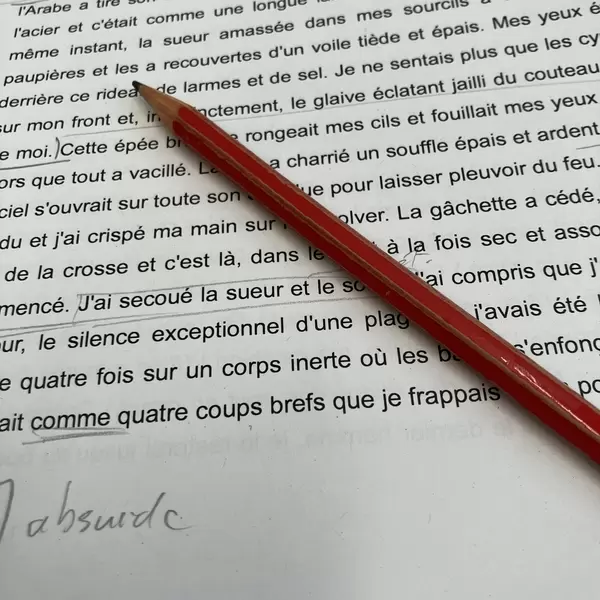 l'Arabe a tiré
l'acier et c'était comme une longue
même instant, la sueur amassée dans mes sourcils a
paupières et les a recouvertes d'un voile tiède et épais. Mes yeux é
derrière ce ridea de larmes et de sel. Je ne sentais plus que les cy
sur mon front et, in nctement, le glaive éclatant jailli du couteau
e moi.) Cette épée br rongeait mes cils et fouillait mes yeux
ors que tout a vacillé. L a charrié un souffle épais et ardent
ciel s'ouvrait sur toute son ue pour laisser pleuvoir du feu.
du et j'ai crispé ma main sur olver. La gâchette a cédé,
de la crosse et c'est là, dans le à la fois sec et asso
mencé. J'ai secoué la sueur et le so J'ai compris que j'
ur, le silence exceptionnel d'une plag j'avais été
e quatre fois sur un corps inerte où les b s'enfonç
ait comme quatre coups brefs que je frappais po
absurde